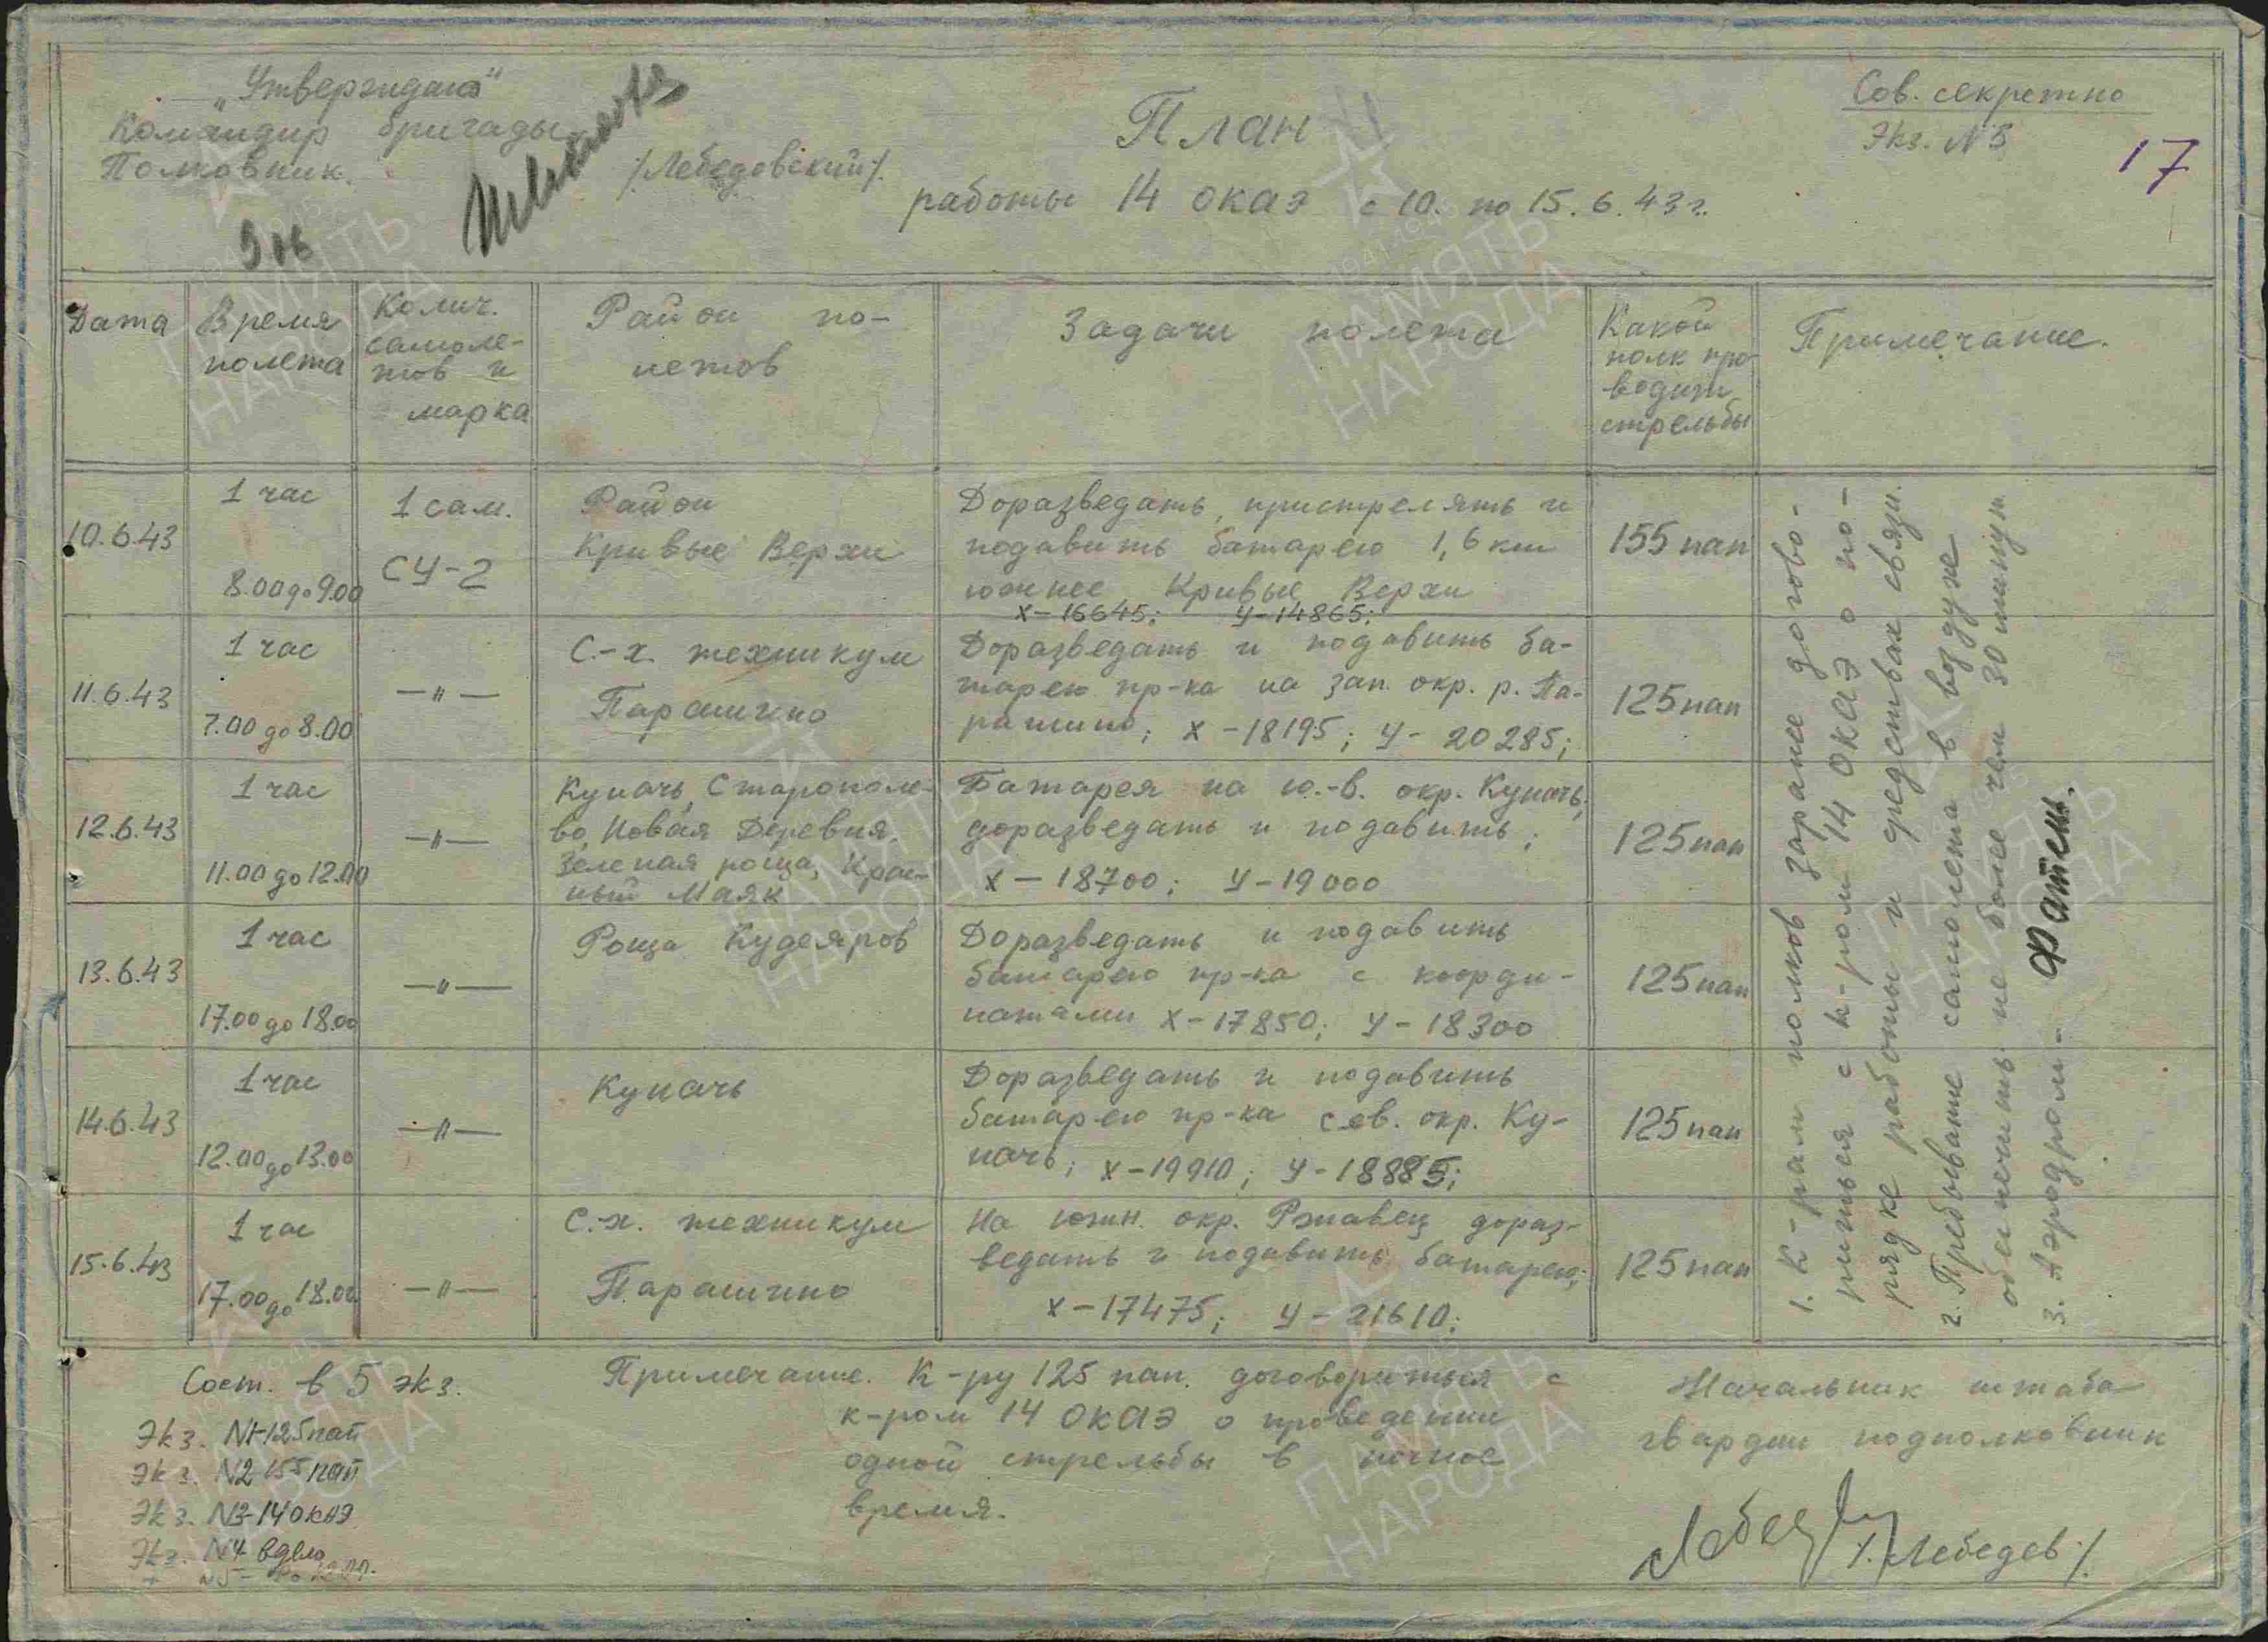 „Утверждаю"
Командир бригады
Полковник
/Лебедовский/.
План
работы 14 ОКАЭ с 10. по 15.6.43г.
Сов. секретно
Экз. №3
17
Дата
Время
полета
Колич.
самоле-
тов и
марка
Район по-
летов
Задачи полета
Какой
полк про-
водит
стрельбы
Примечание.
10.6.43
1 час
8.00 до 9.00
1 сам.
СУ-2
Район
Кривые Верхи
Доразведать, пристрелять и
подавить батарею 1,6 км
южнее Кривые Верхи
х-16645; у-14865;
155 пап
11.6.43
1 час
7.00 до 8.00
—"—
С.-х. техникум
Парамино
Доразведать и подавить ба-
тарею пр-ка на зап. окр. р. Па-
рамино; х-18195; у-20285;
125 пап
12.6.43
1 час
11.00 до 12.00
—"—
Куначь, Старополе-
во, Новая Деревня,
Зеленая роща, Крас-
ный Маяк
Батарея на ю.-в. окр. Куначь,
доразведать и подавить;
х-18700; у-19000
125 пап
13.6.43
1 час
17.00 до 18.00
—"—
Роща Кудеяров
Доразведать и подавить
батарею пр-ка с коорди-
натами х-17850; у-18300
125 пап
14.6.43
1 час
12.00 до 13.00
—"—
Куначь
Доразведать и подавить
батарею пр-ка сев. окр. Ку-
начь; х-19910; у-18885;
125 пап
15.6.43
1 час
17.00 до 18.00
—"—
С.-х. техникум
Парамино
На южн. окр. Ржавец дораз-
ведать и подавить батарею;
х-17475; у-21610;
125 пап
1. К-рам полков заранее догово-
риться с к-ром 14 ОКАЭ о по-
рядке работы и средствах связи.
2. Пребывание самолета в воздухе
обеспечить не более чем 30 минут
3. Аэродром - Фатеж.
Сост. в 5 экз.
Экз. №1-125 пап
Экз. №2-155 пап
Экз. №3-14 ОКАЭ
Экз. №4 в дело
Примечание. К-ру 125 пап. договориться с
к-ром 14 ОКАЭ о проведении
одной стрельбы в ночное
время.
Начальник штаба
гвардии подполковник
/Лебедев/.
ПАМЯТЬ
НАРОДА